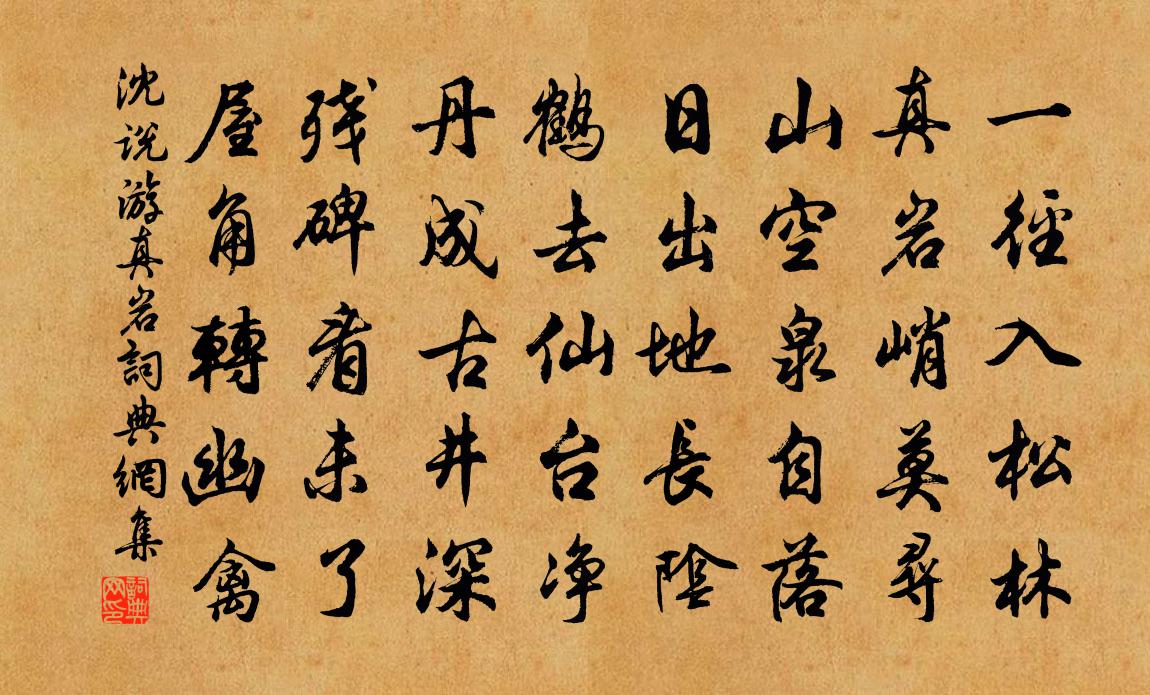 一徑入松林
真岩峭莫尋
山空泉自落
日出地長陰
鶴去仙台净
丹成古井深
残碑看未了
屋角轉幽禽
沈说游真岩詞典網集
詞典网印